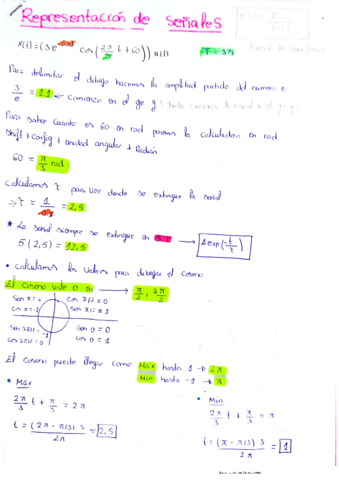 Representación de Señales
x(t)=(3e cos(2π/3 t + 60)) u(t) T = 3s
Para delimitar el dibujo hacemos la amplitud partido del numero e
3/e = 1,1 ← Comienzo en el eje y
Para saber cuanto es 60 en rad ponemos la calculadora en rad
Shift + Config + unidad angular + Radián
60 = π/3 rad
Calculamos τ para ver donde se extingue la señal
→ τ = 1/ = 2,5
* La señal siempre se extingue en 5τ → A exp(-t/τ)
5(2,5) = 12,5
• Calculamos los valores para dibujar el coseno
El coseno vale 0 en → π/2, 3π/2
Sen π = 0 Cos π/2 = 0
Cos π = -1 Sen π/2 = 1
Sen 3π/2 = -1 Sen 0 = 0
Cos 3π/2 = 0 Cos 0 = 1
El coseno puede llegar como Máx hasta 1 → 2π
Min hasta -1 → π
• Máx
2π/3 t + π/3 = 2π
t = (2π - π/3) 3 / 2π = 2,5
• Min
2π/3 t + π/3 = π
t = (π - π/3) 3 / 2π = 1